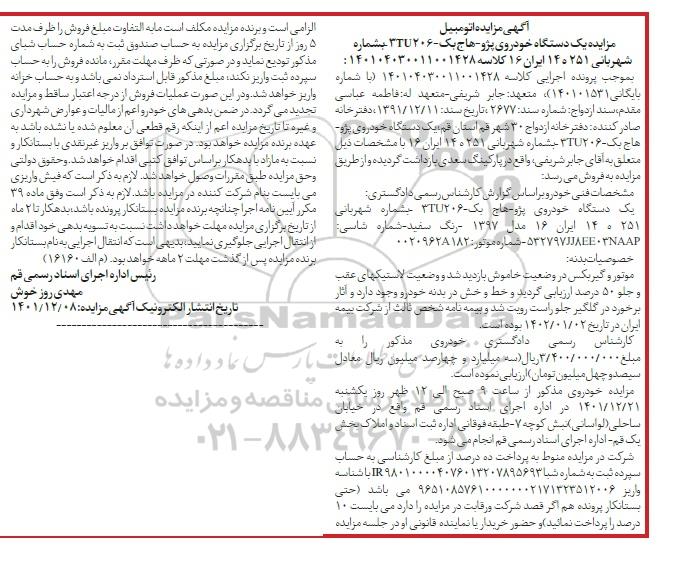 آگهی مزایده اتومبیل
مزایده یک دستگاه خودروی پژو-هاچ بک-3TU206 بشماره
شهربانی 251 ه 14 ایران 16 کلاسه 140104030011001428:
بموجب پرونده اجرایی کلاسه 140104030011001428 (با شماره
بایگانی 140101531)، متعهد: جابر شریفی- متعهد له: فاطمه عباسی
مقدم، سند ازدواج: شماره سند: 2677، تاریخ سند: 1391/12/11، دفترخانه
صادر کننده: دفترخانه ازدواج 30 شهر قم استان قم، یک دستگاه خودروی پژو-
هاچ بک-3TU206 بشماره شهربانی 251 ه 14 ایران 16 با مشخصات ذیل
متعلق به آقای جابر شریفی، واقع در پارکینگ سعدی بازداشت گردیده و از طریق
مزایده به فروش می رسد:
مشخصات فنی خودرو براساس گزارش کارشناس رسمی دادگستری:
یک دستگاه خودروی پژو-هاچ بک-3TU206 بشماره شهربانی
251 ه 14 ایران 16 مدل 1397 -رنگ سفید-شماره شاسی:
532797JJAEE03NAAP-شماره موتور: 0020962A182
خصوصیات بدنه:
موتور و گیربکس در وضعیت خاموش بازدید شد و وضعیت لاستیکهای عقب
و جلو 50 درصد ارزیابی گردید و خط و خش در بدنه خودرو وجود دارد و آثار
برخورد در گلگیر جلو راست رویت شد و بیمه نامه شخص ثالث از شرکت بیمه
ایران در تاریخ 1402/01/02 بوده است.
کارشناس رسمی دادگستری خودروی مذکور را به
مبلغ 3/400/000/000ریال(سه میلیارد و چهارصد میلیون ریال معادل
سیصد و چهل میلیون تومان) ارزیابی نموده است.
مزایده خودروی مذکور از ساعت 9 صبح الی 12 ظهر روز یکشنبه
1401/12/21 در اداره اجرای اسناد رسمی قم واقع در خیابان
ساحلی(لواسانی)نبش کوچه 7-طبقه فوقانی اداره ثبت اسناد و املاک بخش
یک قم- اداره اجرای اسناد رسمی قم انجام می شود.
شرکت در مزایده منوط به پرداخت ده درصد از مبلغ کارشناسی به حساب
سپرده ثبت به شماره شبا IR 980100004076013207895693 با شناسه
واریز می باشد (حتی
بستانکار پرونده هم اگر قصد شرکت ورقابت در مزایده را دارد می بایست 10
درصد را پرداخت نمائید) و حضور خریدار یا نماینده قانونی او در جلسه مزایده
الزامی است و برنده مزایده مکلف است مابه التفاوت مبلغ فروش را ظرف مدت
5 روز از تاریخ برگزاری مزایده به حساب صندوق ثبت به شماره حساب شبای
مذکور تودیع نماید و در صورتی که ظرف مهلت مقرر، مانده فروش را به حساب
سپرده ثبت واریز نکند، مبلغ مذکور قابل استرداد نمی باشد و به حساب خزانه
واریز خواهد شد.ودر این صورت عملیات فروش از درجه اعتبار ساقط و مزایده
تجدید می گردد. در ضمن بدهی های خودرو اعم از مالیات و عوارض شهرداری
و غیره تا تاریخ مزایده اعم از اینکه رقم قطعی آن معلوم شده یا نشده باشد به
عهده برنده مزایده خواهد بود. در صورت توافق بر واریز غیرنقدی با بستانکار و
نسبت به مازاد با بدهکار بر اساس توافق کتبی اقدام خواهد شد. وحقوق دولتی
وحق مزایده طبق مقررات وصول خواهد شد. لازم به ذکر است که فیش واریزی
می بایست بنام شرکت کننده در مزایده باشد. لازم به ذکر است وفق ماده 39
مکرر آیین نامه اجرا چنانچه برنده مزایده بستانکار پرونده باشد؛ بدهکار تا 2 ماه
از تاریخ برگزاری مزایده مهلت خواهد داشت نسبت به تسویه بدهی خود اقدام و
از انتقال اجرایی جلوگیری نمایید؛ بدیهی است که انتقال اجرایی به نام بستانکار
برنده مزایده پس از گذشت مهلت 2 ماهه خواهد بود. (م الف 16160)
رئیس اداره اجرای اسناد رسمی قم
مهدی روز خوش
تاریخ انتشار الکترونیک آگهی مزایده: 1401/12/08
ParsNamadData
پایگاه اطلاع رسانی مناقصه و مزایده
021-88349670-5